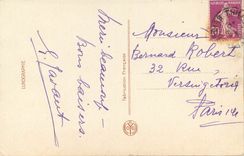 Merci beaucoup –
Bons baisers.
Fabrication Française
Monsieur
Bernard Robert
32 Rue
Vercingétorix
Paris 14